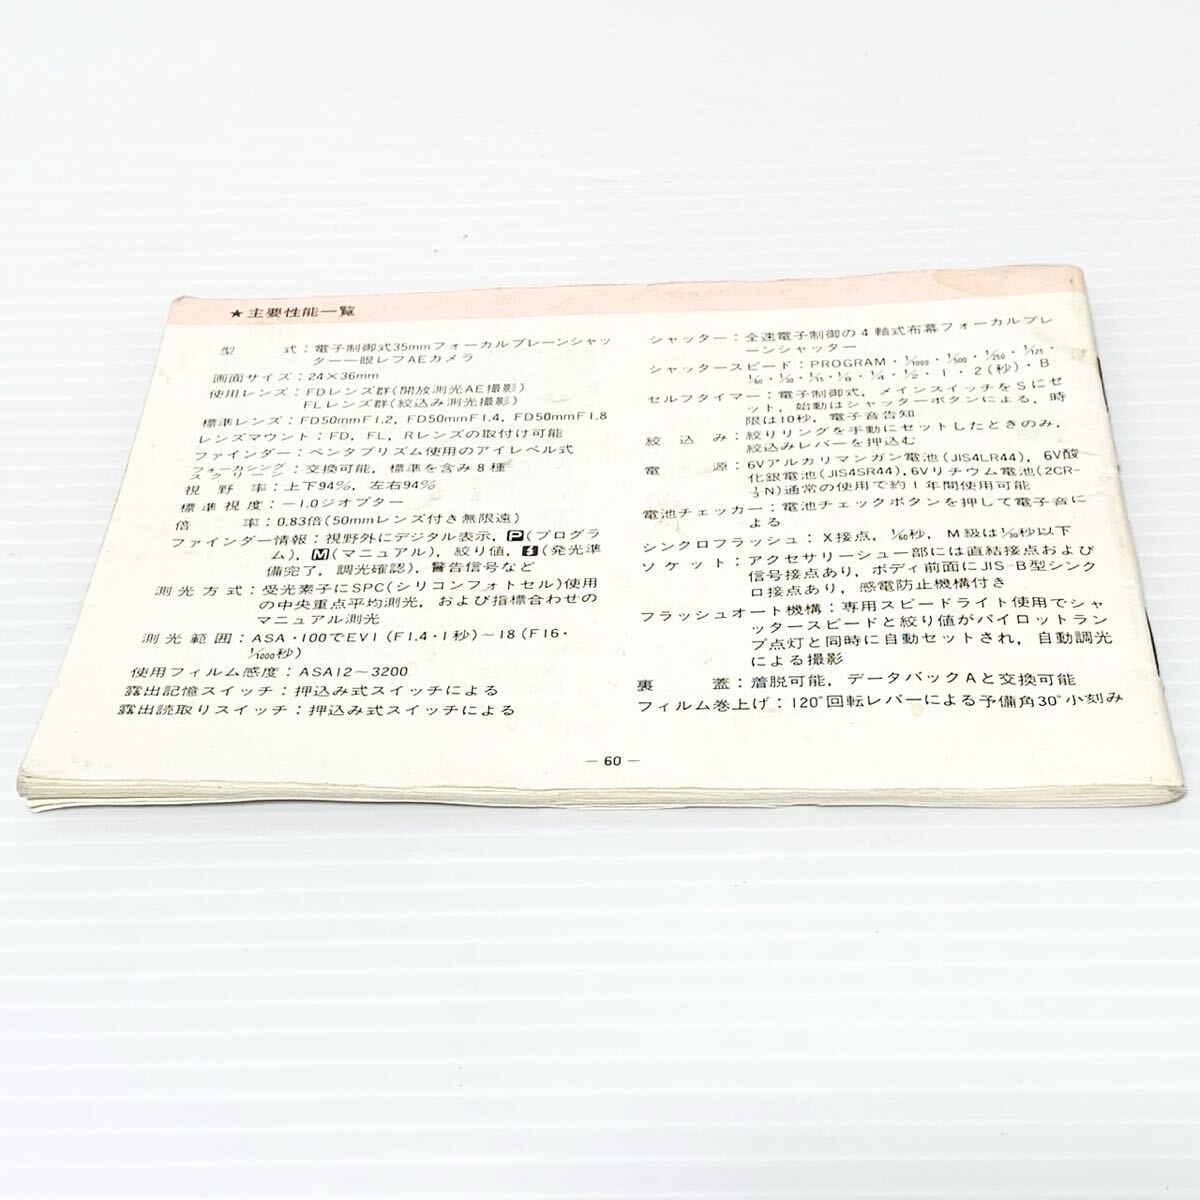 ★主要性能一覧
型　　式：電子制御式35mmフォーカルプレーンシャッ
ター一眼レフAEカメラ
画面サイズ：24×36mm
使用レンズ：FDレンズ群(開放測光AE撮影)
FLレンズ群(絞込み測光撮影)
標準レンズ：FD50mmF1.2, FD50mmF1.4, FD50mmF1.8
レンズマウント：FD, FL, Rレンズの取付け可能
ファインダー：ペンタプリズム使用のアイレベル式
フォーカシングスクリーン：交換可能, 標準を含み8種
視野率：上下94%, 左右94%
標準視度：－1.0ジオプター
倍　　率：0.83倍(50mmレンズ付き無限遠)
ファインダー情報：視野外にデジタル表示, P(プログラ
ム), M(マニュアル), 絞り値, (発光準
備完了, 調光確認), 警告信号など
測光方式：受光素子にSPC(シリコンフォトセル)使用
の中央重点平均測光, および指標合わせの
マニュアル測光
測光範囲：ASA・100でEV1 (F1.4・1秒)～18 (F16・
1/1000秒)
使用フィルム感度：ASA12～3200
露出記憶スイッチ：押込み式スイッチによる
露出読取りスイッチ：押込み式スイッチによる
シャッター：全速電子制御の4軸式布幕フォーカルプレ
ーンシャッター
シャッタースピード：PROGRAM・1/1000・1/500・1/250・1/125・
1/60・1/30・1/15・1/8・1/4・1/2・1・2(秒)・B
セルフタイマー：電子制御式, メインスイッチをSにセ
ット, 始動はシャッターボタンによる, 時
限は10秒, 電子音告知
絞込み：絞りリングを手動にセットしたときのみ,
絞込みレバーを押込む
電　　源：6Vアルカリマンガン電池(JIS4LR44), 6V酸
化銀電池(JIS4SR44), 6Vリチウム電池(2CR-
1/3N)通常の使用で約1年間使用可能
電池チェッカー：電池チェックボタンを押して電子音に
よる
シンクロフラッシュ：X接点, 1/60秒, M級は1/30秒以下
ソケット：アクセサリーシュー部には直結接点および
信号接点あり, ボディ前面にJIS-B型シンク
ロ接点あり, 感電防止機構付き
フラッシュオート機構：専用スピードライト使用でシャ
ッタースピードと絞り値がパイロットラン
プ点灯と同時に自動セットされ, 自動調光
による撮影
裏　　蓋：着脱可能, データバックAと交換可能
フィルム巻上げ：120°回転レバーによる予備角30°小刻み
— 60 —